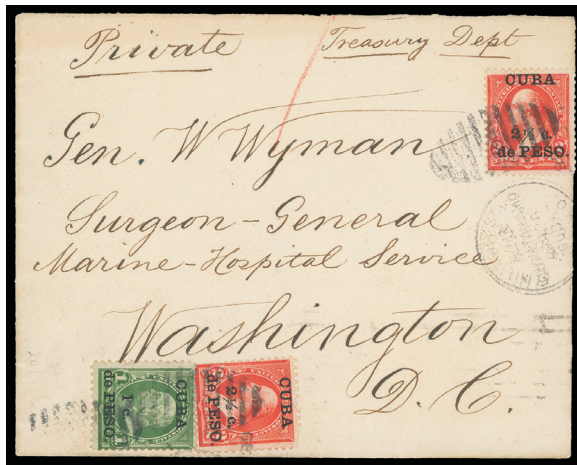 Private
Treasury Dept
CUBA
2½ c.
de PESO.
Gen. W Wyman
Surgeon-General
Marine-Hospital Service
Washington
D.C.
CUBA
1 c.
de PESO.
CUBA
2½ c.
de PESO.